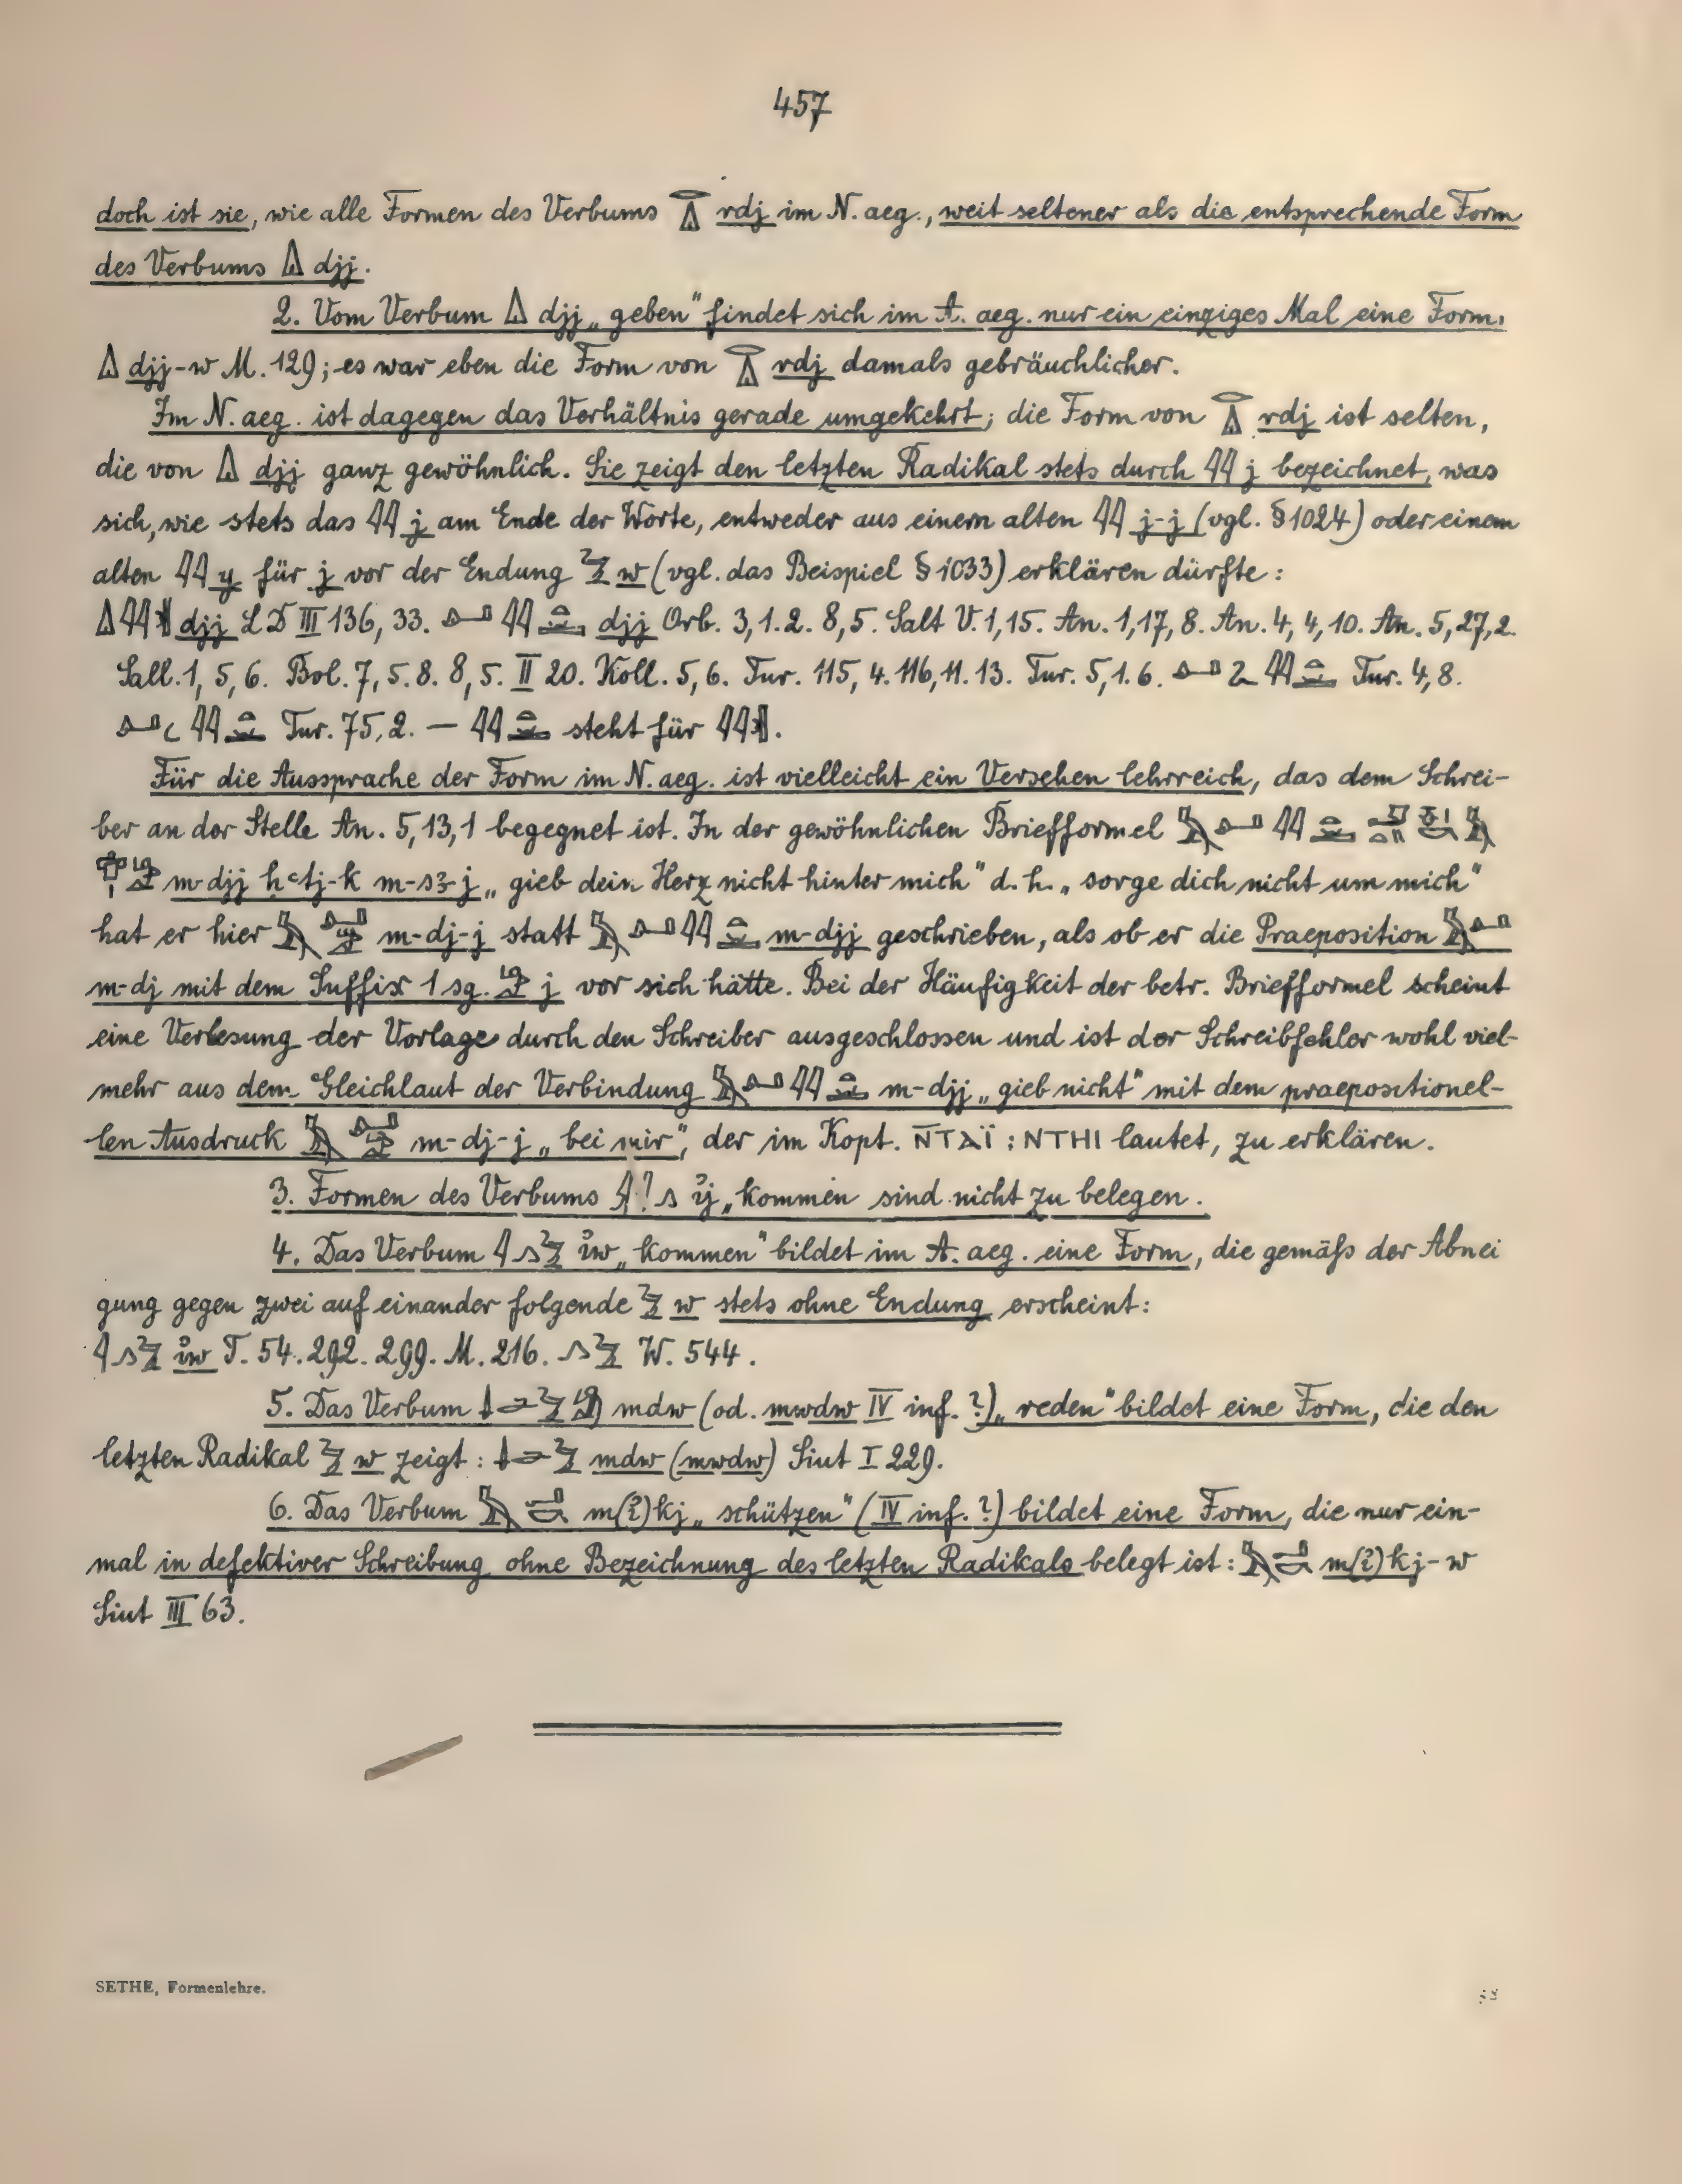 457
doch ist sie, wie alle Formen des Verbums 𓂋𓏙 rdj im N. aeg., weit seltener als die entsprechende Form
des Verbums 𓏙 djj.
2. Vom Verbum 𓏙 djj „geben" findet sich im A. aeg. nur ein einziges Mal eine Form,
𓏙 djj-w M. 129; es war eben die Form von 𓂋𓏙 rdj damals gebräuchlicher.
Im N. aeg. ist dagegen das Verhältnis gerade umgekehrt; die Form von 𓂋𓏙 rdj ist selten,
die von 𓏙 djj ganz gewöhnlich. Sie zeigt den letzten Radikal stets durch 𓇋𓇋 j bezeichnet, was
sich, wie stets das 𓇋𓇋 j am Ende der Worte, entweder aus einem alten 𓇋𓇋 j-j (vgl. § 1024) oder einem
alten 𓇋𓇋 y für j vor der Endung 𓅱 w (vgl. das Beispiel § 1033) erklären dürfte:
𓏙𓇋𓇋 djj LD III 136, 33. 𓂞𓇋𓇋 djj Orb. 3,1.2. 8,5. Salt V. 1,15. An. 1,17,8. An. 4,4,10. An. 5,27,2.
Sall. 1, 5, 6. Bol. 7, 5. 8. 8, 5. II 20. Koll. 5, 6. Tur. 115, 4. 116, 11. 13. Tur. 5, 1. 6. 𓂞𓇋𓇋 Tur. 4, 8.
𓂞𓇋𓇋 Tur. 75, 2. — 𓇋𓇋 steht für 𓇋𓇋.
Für die Aussprache der Form im N. aeg. ist vielleicht ein Versehen lehrreich, das dem Schrei-
ber an der Stelle An. 5,13,1 begegnet ist. In der gewöhnlichen Briefformel 𓅓𓂞𓇋𓇋
m-djj ḥꜥtj-k m-sꜣ-j „gieb dein Herz nicht hinter mich" d. h. „sorge dich nicht um mich"
hat er hier 𓅓𓂞 m-dj-j statt 𓅓𓂞𓇋𓇋 m-djj geschrieben, als ob er die Praeposition 𓅓𓂞
m-dj mit dem Suffix 1 sg. 𓀁 j vor sich hätte. Bei der Häufigkeit der betr. Briefformel scheint
eine Verlesung der Vorlage durch den Schreiber ausgeschlossen und ist der Schreibfehler wohl viel-
mehr aus dem Gleichlaut der Verbindung 𓅓𓂞𓇋𓇋 m-djj „gieb nicht" mit dem praepositionel-
len Ausdruck 𓅓𓂞 m-dj-j „bei mir", der im Kopt. N̄TAÏ : NTHI lautet, zu erklären.
3. Formen des Verbums ỉj „kommen sind nicht zu belegen.
4. Das Verbum 𓇋𓂻𓅱 ỉw „kommen" bildet im A. aeg. eine Form, die gemäß der Abnei
gung gegen zwei auf einander folgende 𓅱 w stets ohne Endung erscheint:
𓇋𓂻𓅱 ỉw T. 54. 292. 299. M. 216. 𓂻𓅱 W. 544.
5. Das Verbum 𓌃𓂧𓅱𓀁 mdw (od. mwdw IV inf. ?) „reden" bildet eine Form, die den
letzten Radikal 𓅱 w zeigt: 𓌃𓂧𓅱 mdw (mwdw) Siut I 229.
6. Das Verbum 𓅓𓎡𓂡 m(ỉ)kj „schützen" (IV inf. ?) bildet eine Form, die nur ein-
mal in defektiver Schreibung ohne Bezeichnung des letzten Radikals belegt ist: 𓅓𓎡𓂡 m(ỉ)kj-w
Siut III 63.
SETHE, Formenlehre.